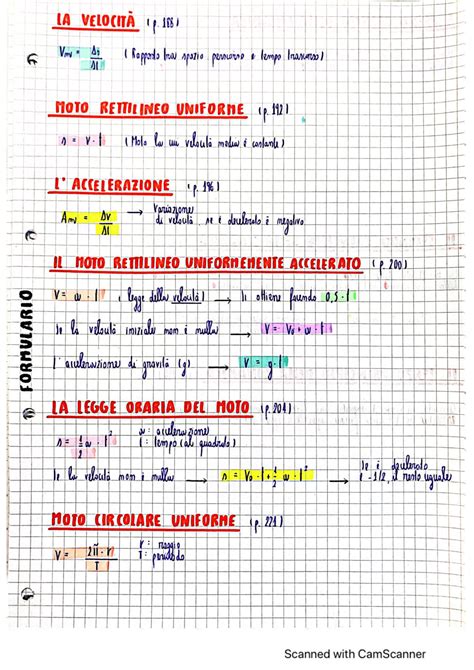 LA VELOCITÀ (p. 188)
Vm = Δs/Δt (Rapporto tra spazio percorso e tempo trascorso)
MOTO RETTILINEO UNIFORME (p. 192)
s = v · t (Moto la cui velocità media è costante)
L'ACCELERAZIONE (p. 196)
Am = Δv/Δt → Variazione
di velocità, se è decelerato è negativo
IL MOTO RETTILINEO UNIFORMEMENTE ACCELERATO (p. 200)
V = a · t (legge della velocità) → Si ottiene facendo 0,5 · t
Se la velocità iniziale non è nulla → V = V0 + a · t
L'accelerazione di gravità (g) → V = g · t
FORMULARIO
LA LEGGE ORARIA DEL MOTO (p. 204)
s = 1/2 a · t² a: accelerazione
t: tempo (al quadrato)
Se la velocità non è nulla → s = V0 · t + 1/2 a · t² → Se è decelerato
è -1/2, il resto uguale
MOTO CIRCOLARE UNIFORME (p. 221)
V = 2π · r/T r: raggio
T: periodo
Scanned with CamScanner